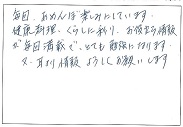 毎回、あめんぼ楽しみにしています。
健康料理、くらしに彩り、お役立ち情報
が毎回満載で、とても勉強になります。
又、耳より情報よろしくお願いします